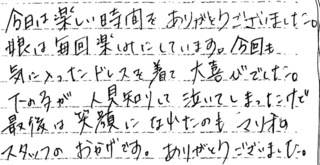 今日は楽しい時間をありがとうございました。
娘は毎回楽しみにしています。今回も
気に入ったドレスを着て大喜びでした。
下の子が人見知りして泣いてしまったけど
最後は笑顔になれたのもマリオの
スタッフのおかげです。ありがとうございました。